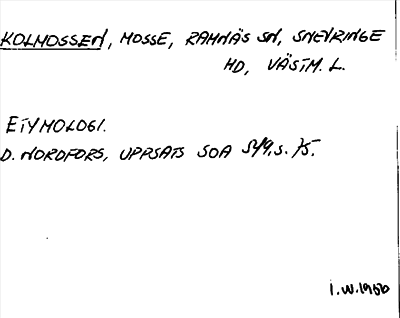 KOLMOSSEN, MOSSE, RAMNÄS SN, SNEVRINGE
HD, VÄSTM. L.
ETYMOLOGI.
D. NORDFORS, UPPSATS SOA S. 15.
I.W. 1956